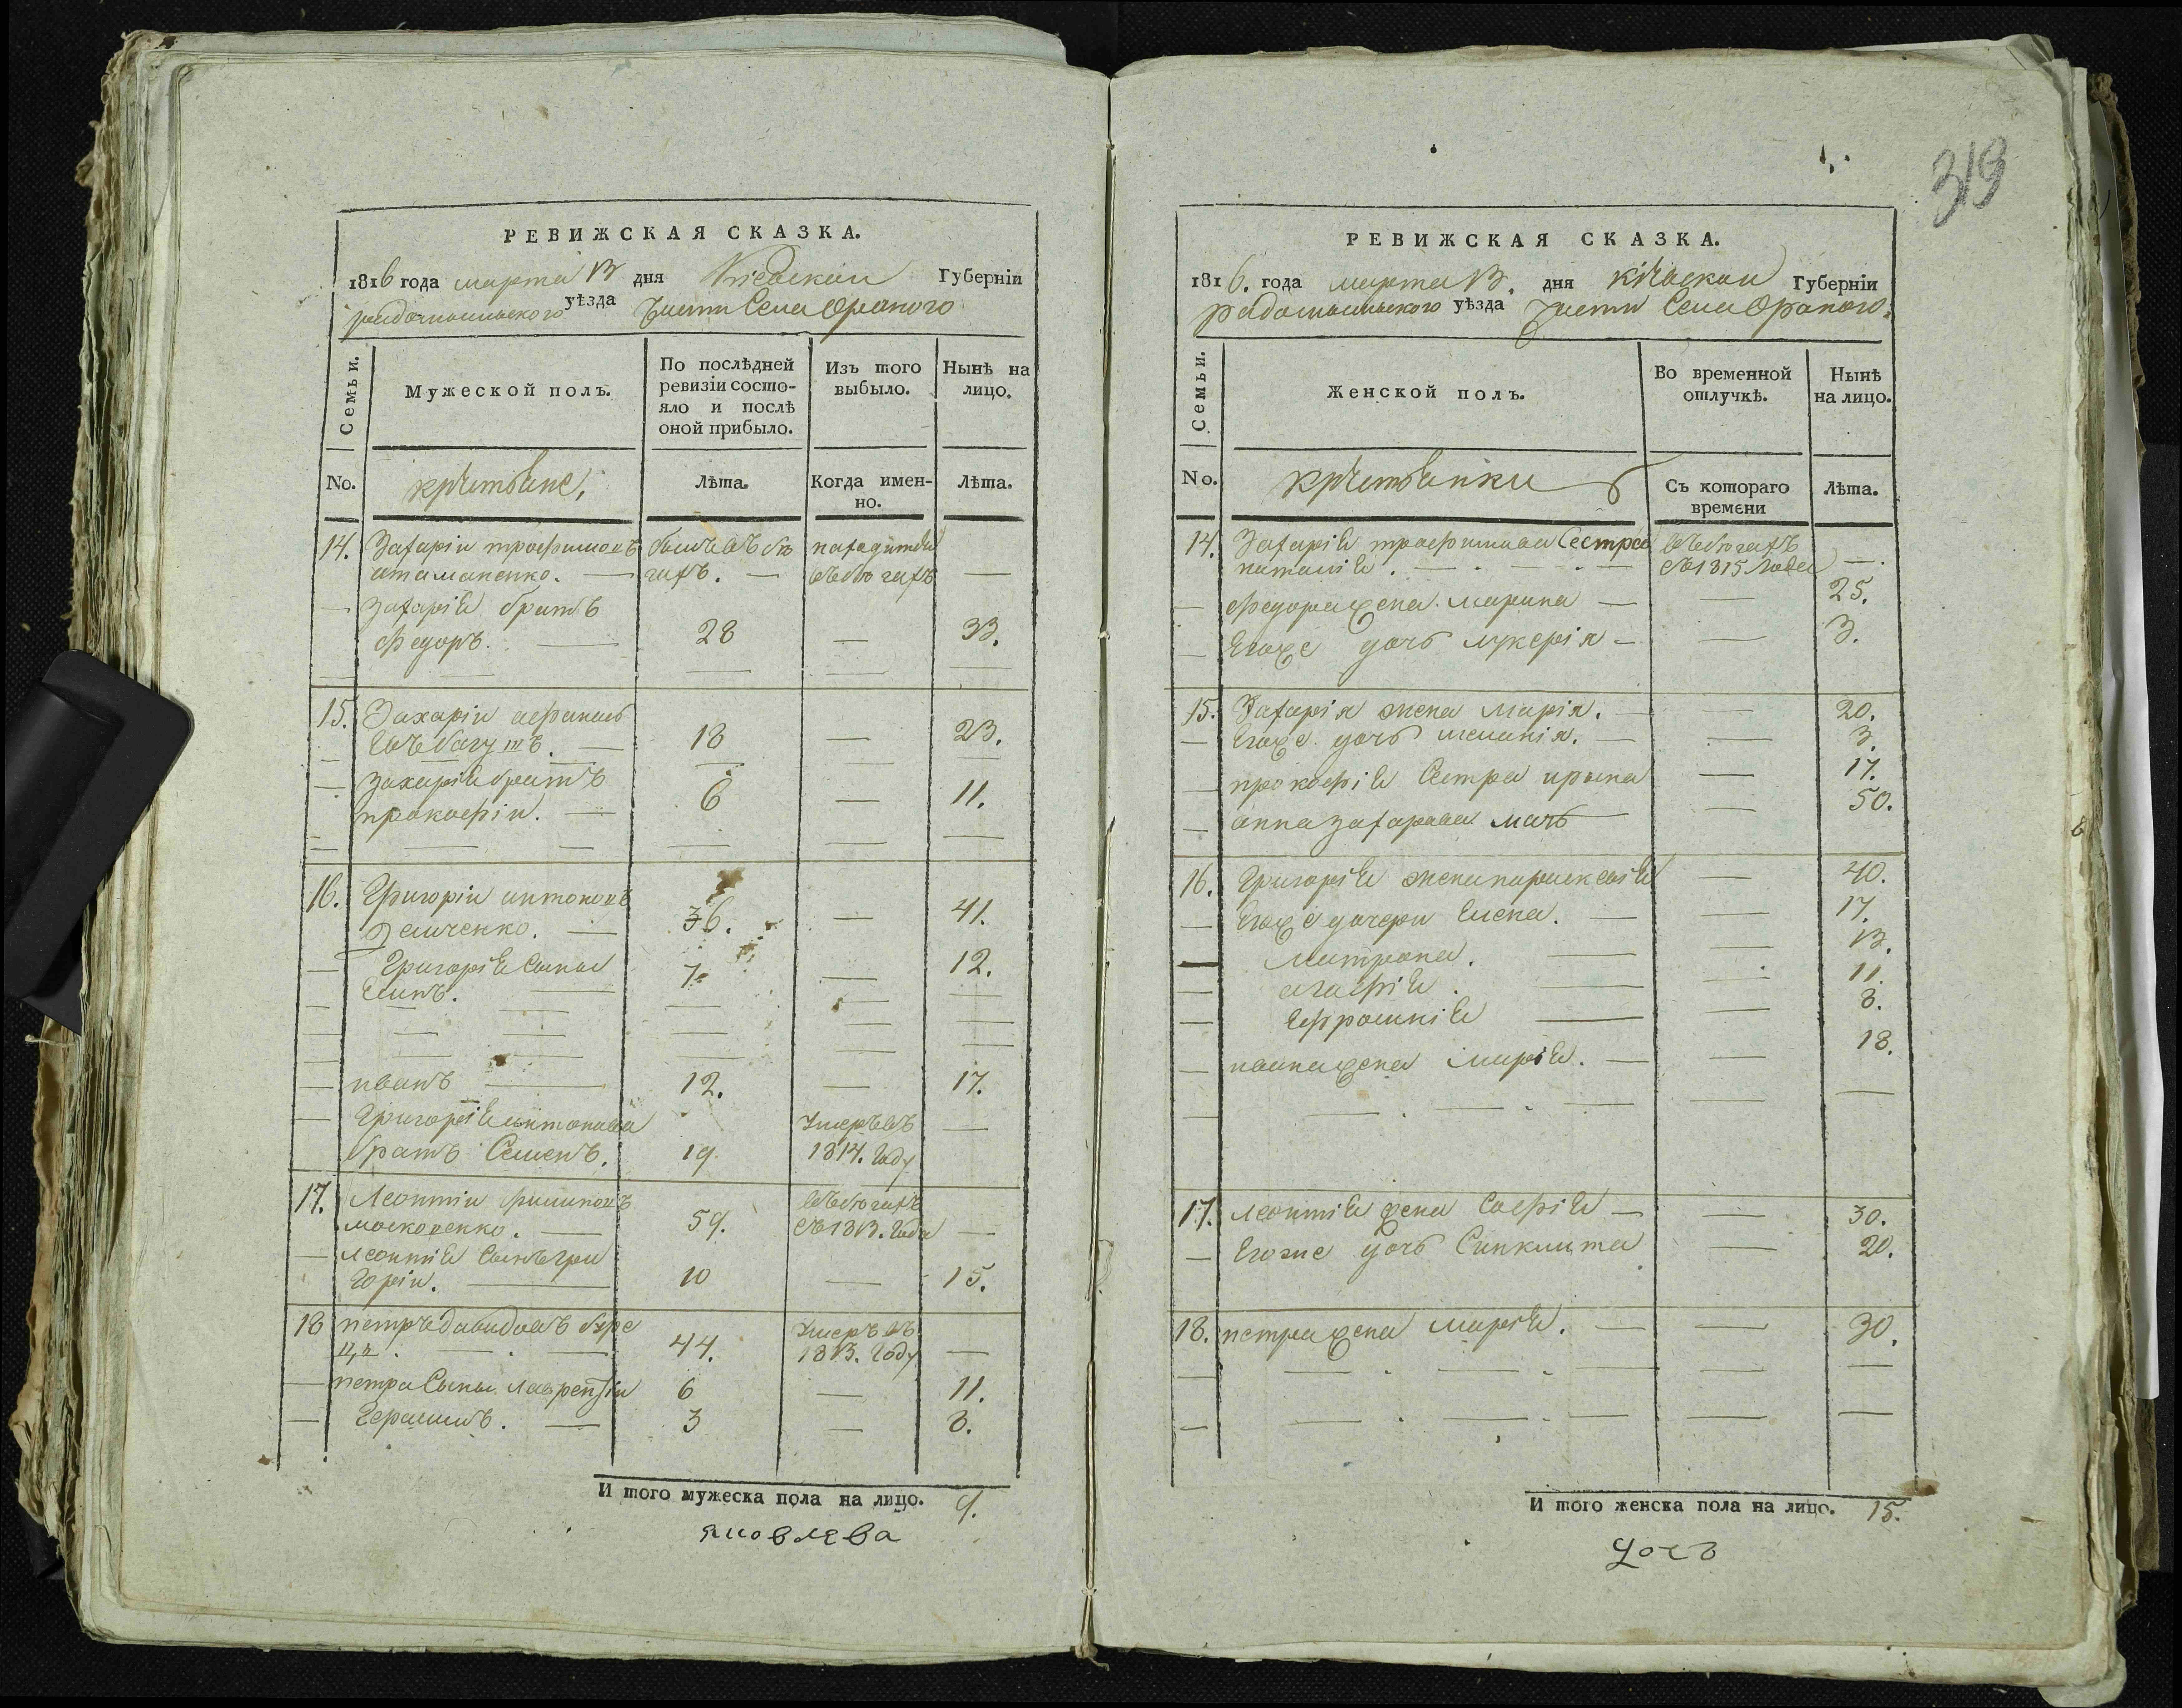 319
РЕВИЖСКАЯ СКАЗКА.
1816 года марта 13 дня Кіевской Губерніи
радомышльского уѣзда Части Села Ораного
Семьи.
Мужеской полъ.
По послѣдней ревизіи состо-
яло и послѣ
оной прибыло.
Изъ того
выбыло.
Нынѣ на
лицо.
No.
крѣстьяне,
Лѣта.
Когда имен-
но.
Лѣта.
14. Захарій трофимовъ былъ въ бѣ находится
атаманенко. — гахъ. — въ бѣгахъ —
— Захарія братъ
Федоръ. — 28 — 33.
15. Захарій афанась
евъ 18 — 23.
— Захарія братъ
прокофій. — 6 — 11.
16. Григорій антоновъ
36. — 41.
— Григорія Сыны
7. — 12.
— иванъ — 12. — 17.
— Григорія антонова Умеръ въ —
братъ Семенъ. 19. 1814. Году
17. Леонтій филиповъ въ бѣгахъ
московенко. — 59. съ 1813. Года —
— Леонтія Сынъ Гри
горій. — 10 — 15.
18 петръ давидовъ Умеръ въ
44. 1813. Году —
— петра Сыны Лаврентій 6 — 11.
— Герасимъ. — 3 — 8.
И того мужеска пола на лицо. 9.
яковлева
РЕВИЖСКАЯ СКАЗКА.
1816. года марта 13. дня кіевской Губерніи
радомышльского уѣзда Части Села Ораного.
Семьи.
Женской полъ.
Во временной
отлучкѣ.
Нынѣ
на лицо.
No.
крѣстьянки
Съ котораго
времени
Лѣта.
14. Захарія трофимова Сестра въ бѣгахъ
наталія. — съ 1815 Года —.
— федора жена марина — — 25.
— Егоже дочь лукерія — — 3.
15. Захарія жена марія. — 20.
— Егоже дочь меланія. — — 3.
— прокофія Сестра ирина — 17.
— анна захарова мать — 50.
16. Григорія жена параскевія — 40.
— Егоже дочери Елена. — — 17.
— Матрона. — — 13.
— агафія. — — 11.
— Ефросинія — — 8.
— ивана жена марія. — — 18.
17. леонтія жена Софія — — 30.
— Егоже дочь Синклита — 20.
18. петра жена марія. — — 30.
И того женска пола на лицо. 15.
дочь